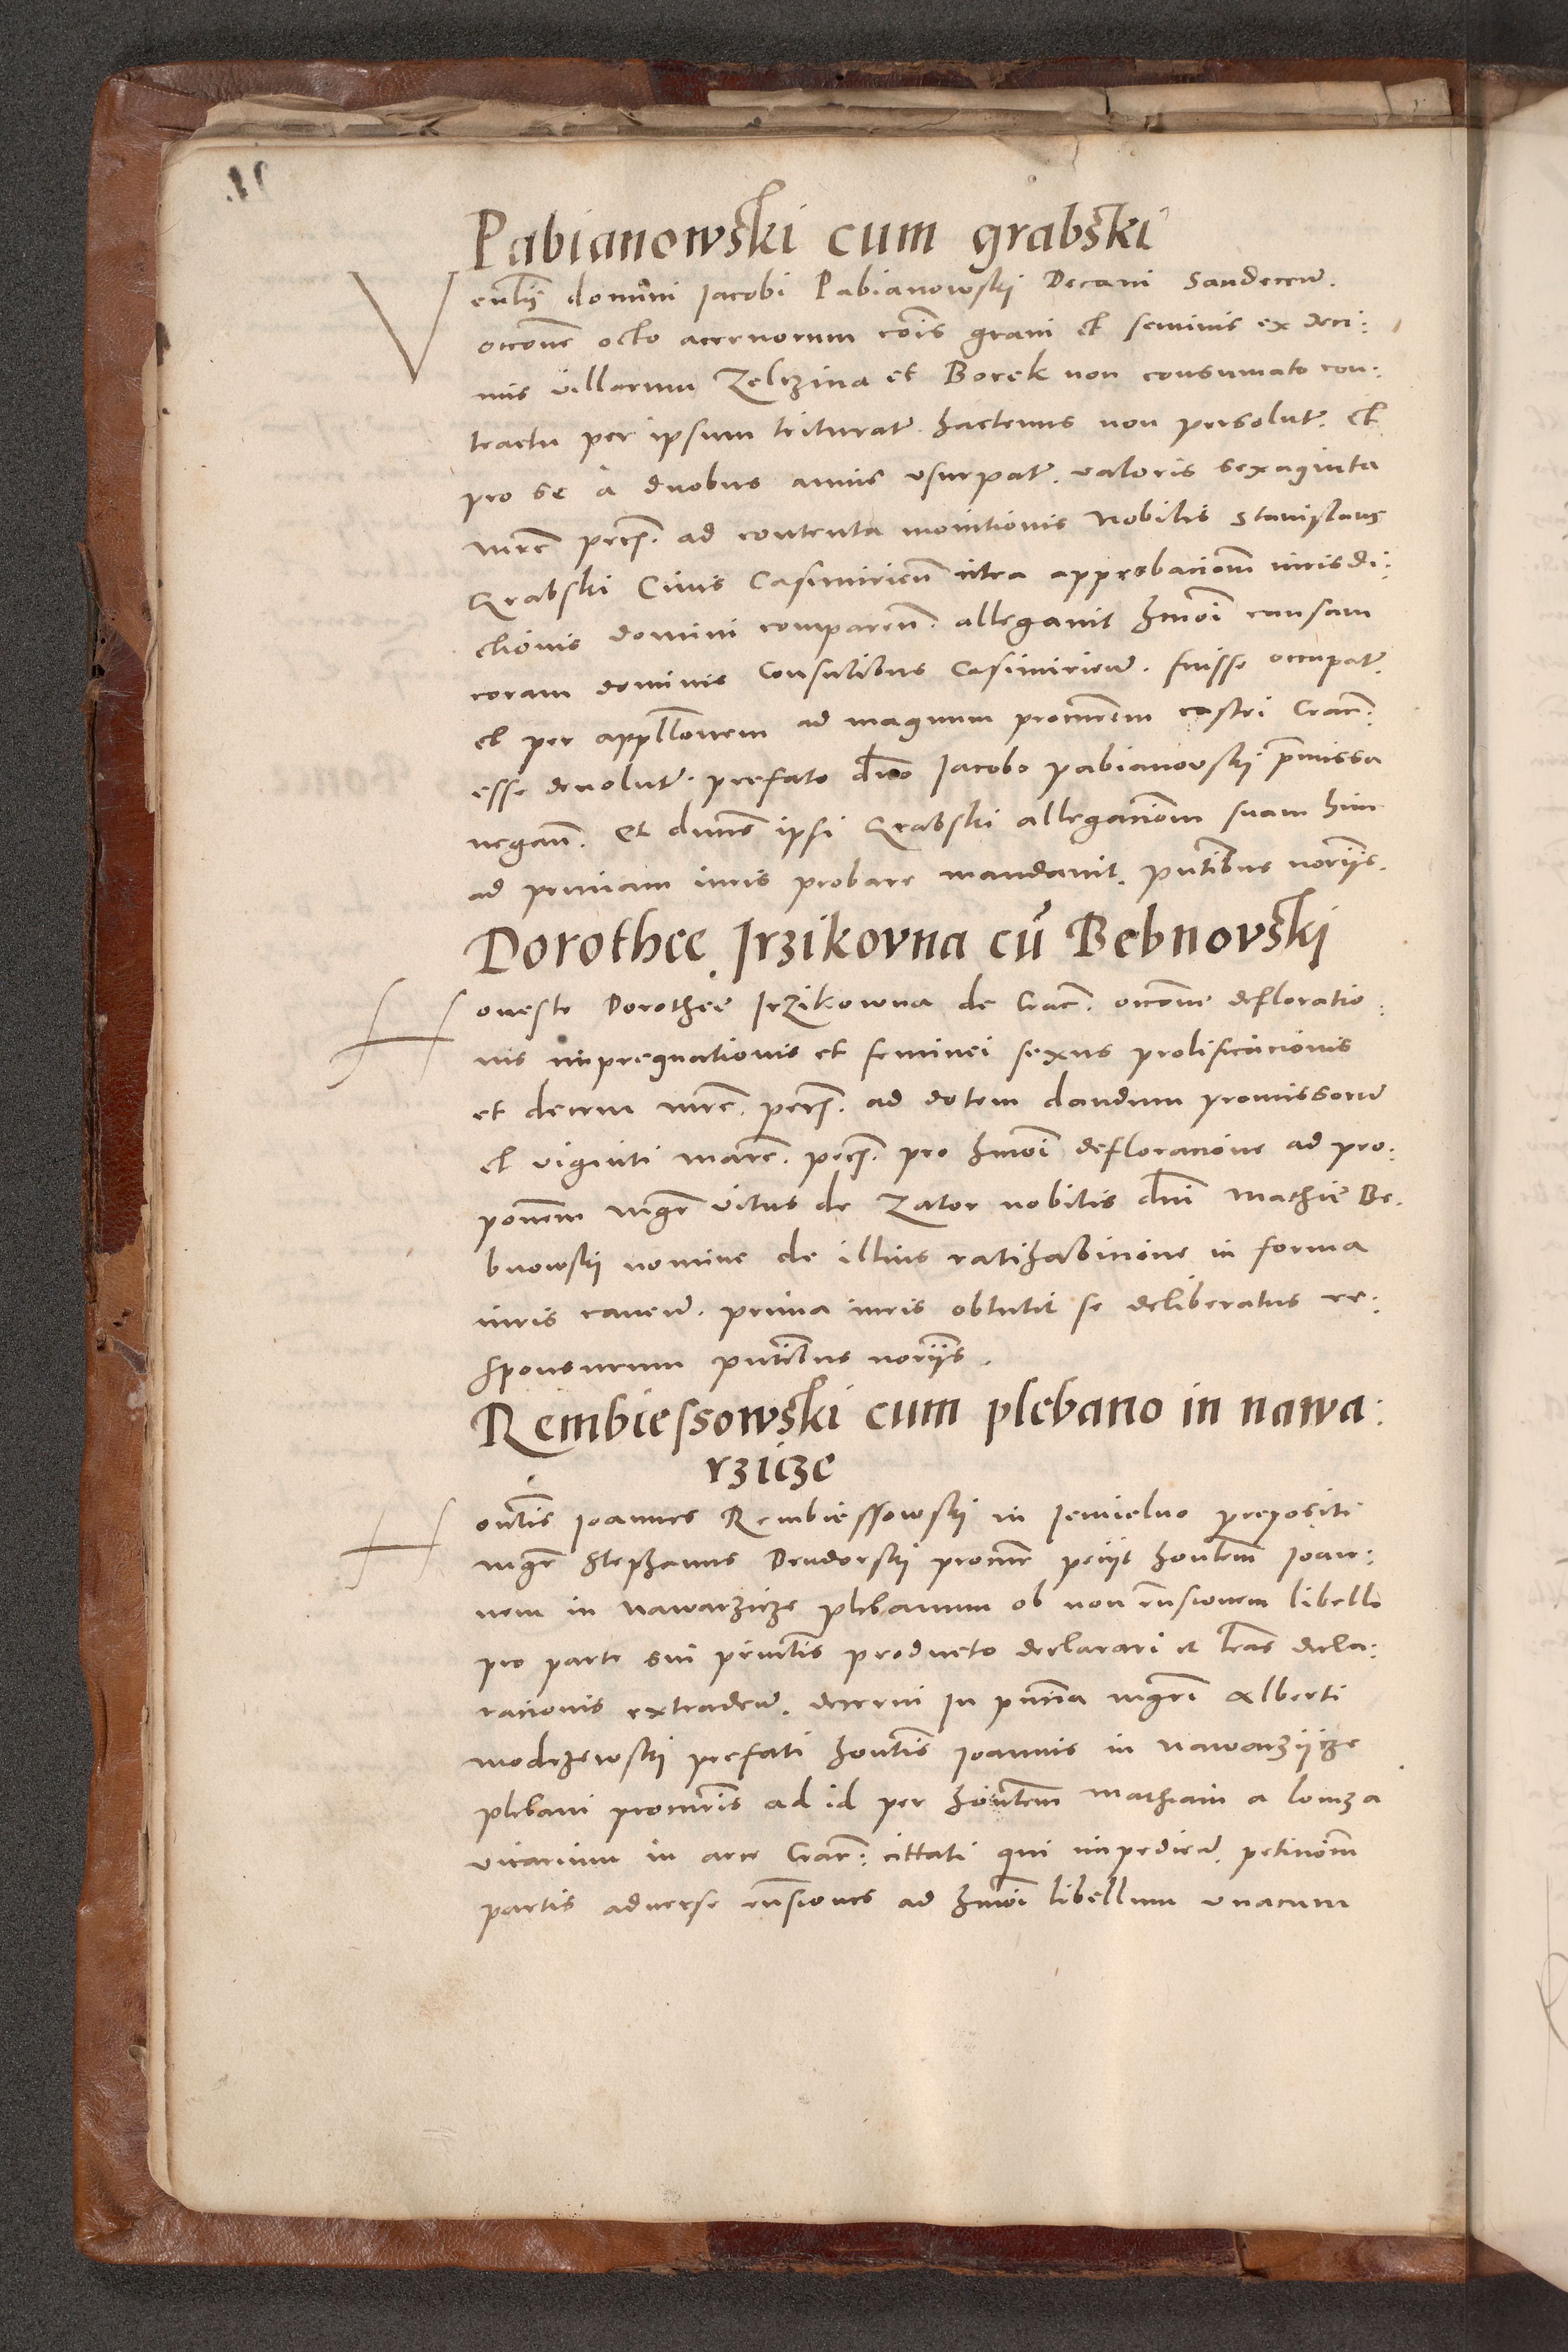 Pabianowski cum grabski
Venlis domini Jacobi Pabianowskj Decani Sandecen̄.
occone octo acervorum cōis grani et seminis ex deci:
mis villarum Zelczina et Borek non consumato con:
tractu per ipsum triturat. hactenus non persolut. et
pro se a duobus annis usurpat. valoris sexaginta
mrc̄ pecs. ad contenta monitionis Nobilis Stanislaus
Grabski Civis Casimirien̄ citra approbacionem iurisdi:
ctionis domini comparen̄. allegavit hmōi causam
coram dominis Consulibus Casimirien̄. fuisse occupat.
et per appllōnem ad magnum procurem castri Crac̄.
esse devolut. prefato dno Jacobo Pabianovskj pmissa
negan̄. Et dnus ipsi Grabski allegacionem suam hinc
ad primam iuris probare mandavit. pntibus noriis.
Dorothee Irzikovna cū Bebnovskj
Honeste Dorothee Irzikowna de Crac̄. occone defloratio:
nis impregnationis et feminei sexus prolificacionis
et decem mrc̄. pecs. ad dotem dandum promissorum
et viginti marc̄. pecs. pro hmōi defloracione ad pro:
ponem mgr̄ Vitus de Zator nobilis dni Mathie Be:
bnowskj nomine de illius ratihabicione in forma
iuris caven̄. prima iuris obtulit se deliberatus re:
sponsurum pntibus noriis.
Rembiessowski cum plebano in nawa:
rzicze
Honlis Joannes Rembiessowskj in Jemielno prepositi
mgr̄ Stephanus Drudorskj procur petiit honlem Joan:
nem in Nawarzicze plebanum ob non rnsionem libello
pro parte sui principalis producto declarari et lras decla:
racionis extraden̄. decerni In pncia mgri Alberti
Modrzewskj prefati honlis Joannis in Nawarziicze
plebani procuris ad id per honlem Mathiam a Lomza
vicarium in arce Crac̄: cittati qui impedien̄. peticionem
partis adverse rnsiones ad hmōi libellum unacum